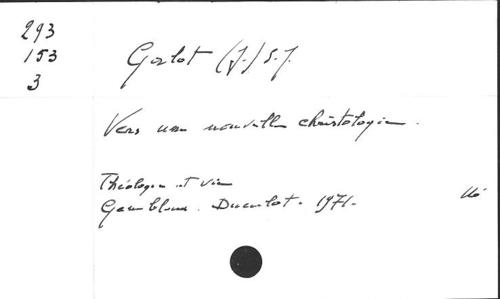 293
153
3
Gozlot (J.) S.J.
Vers une nouvelle christologie.
Théologie et vie
Gembloux. Duculot. 1971.